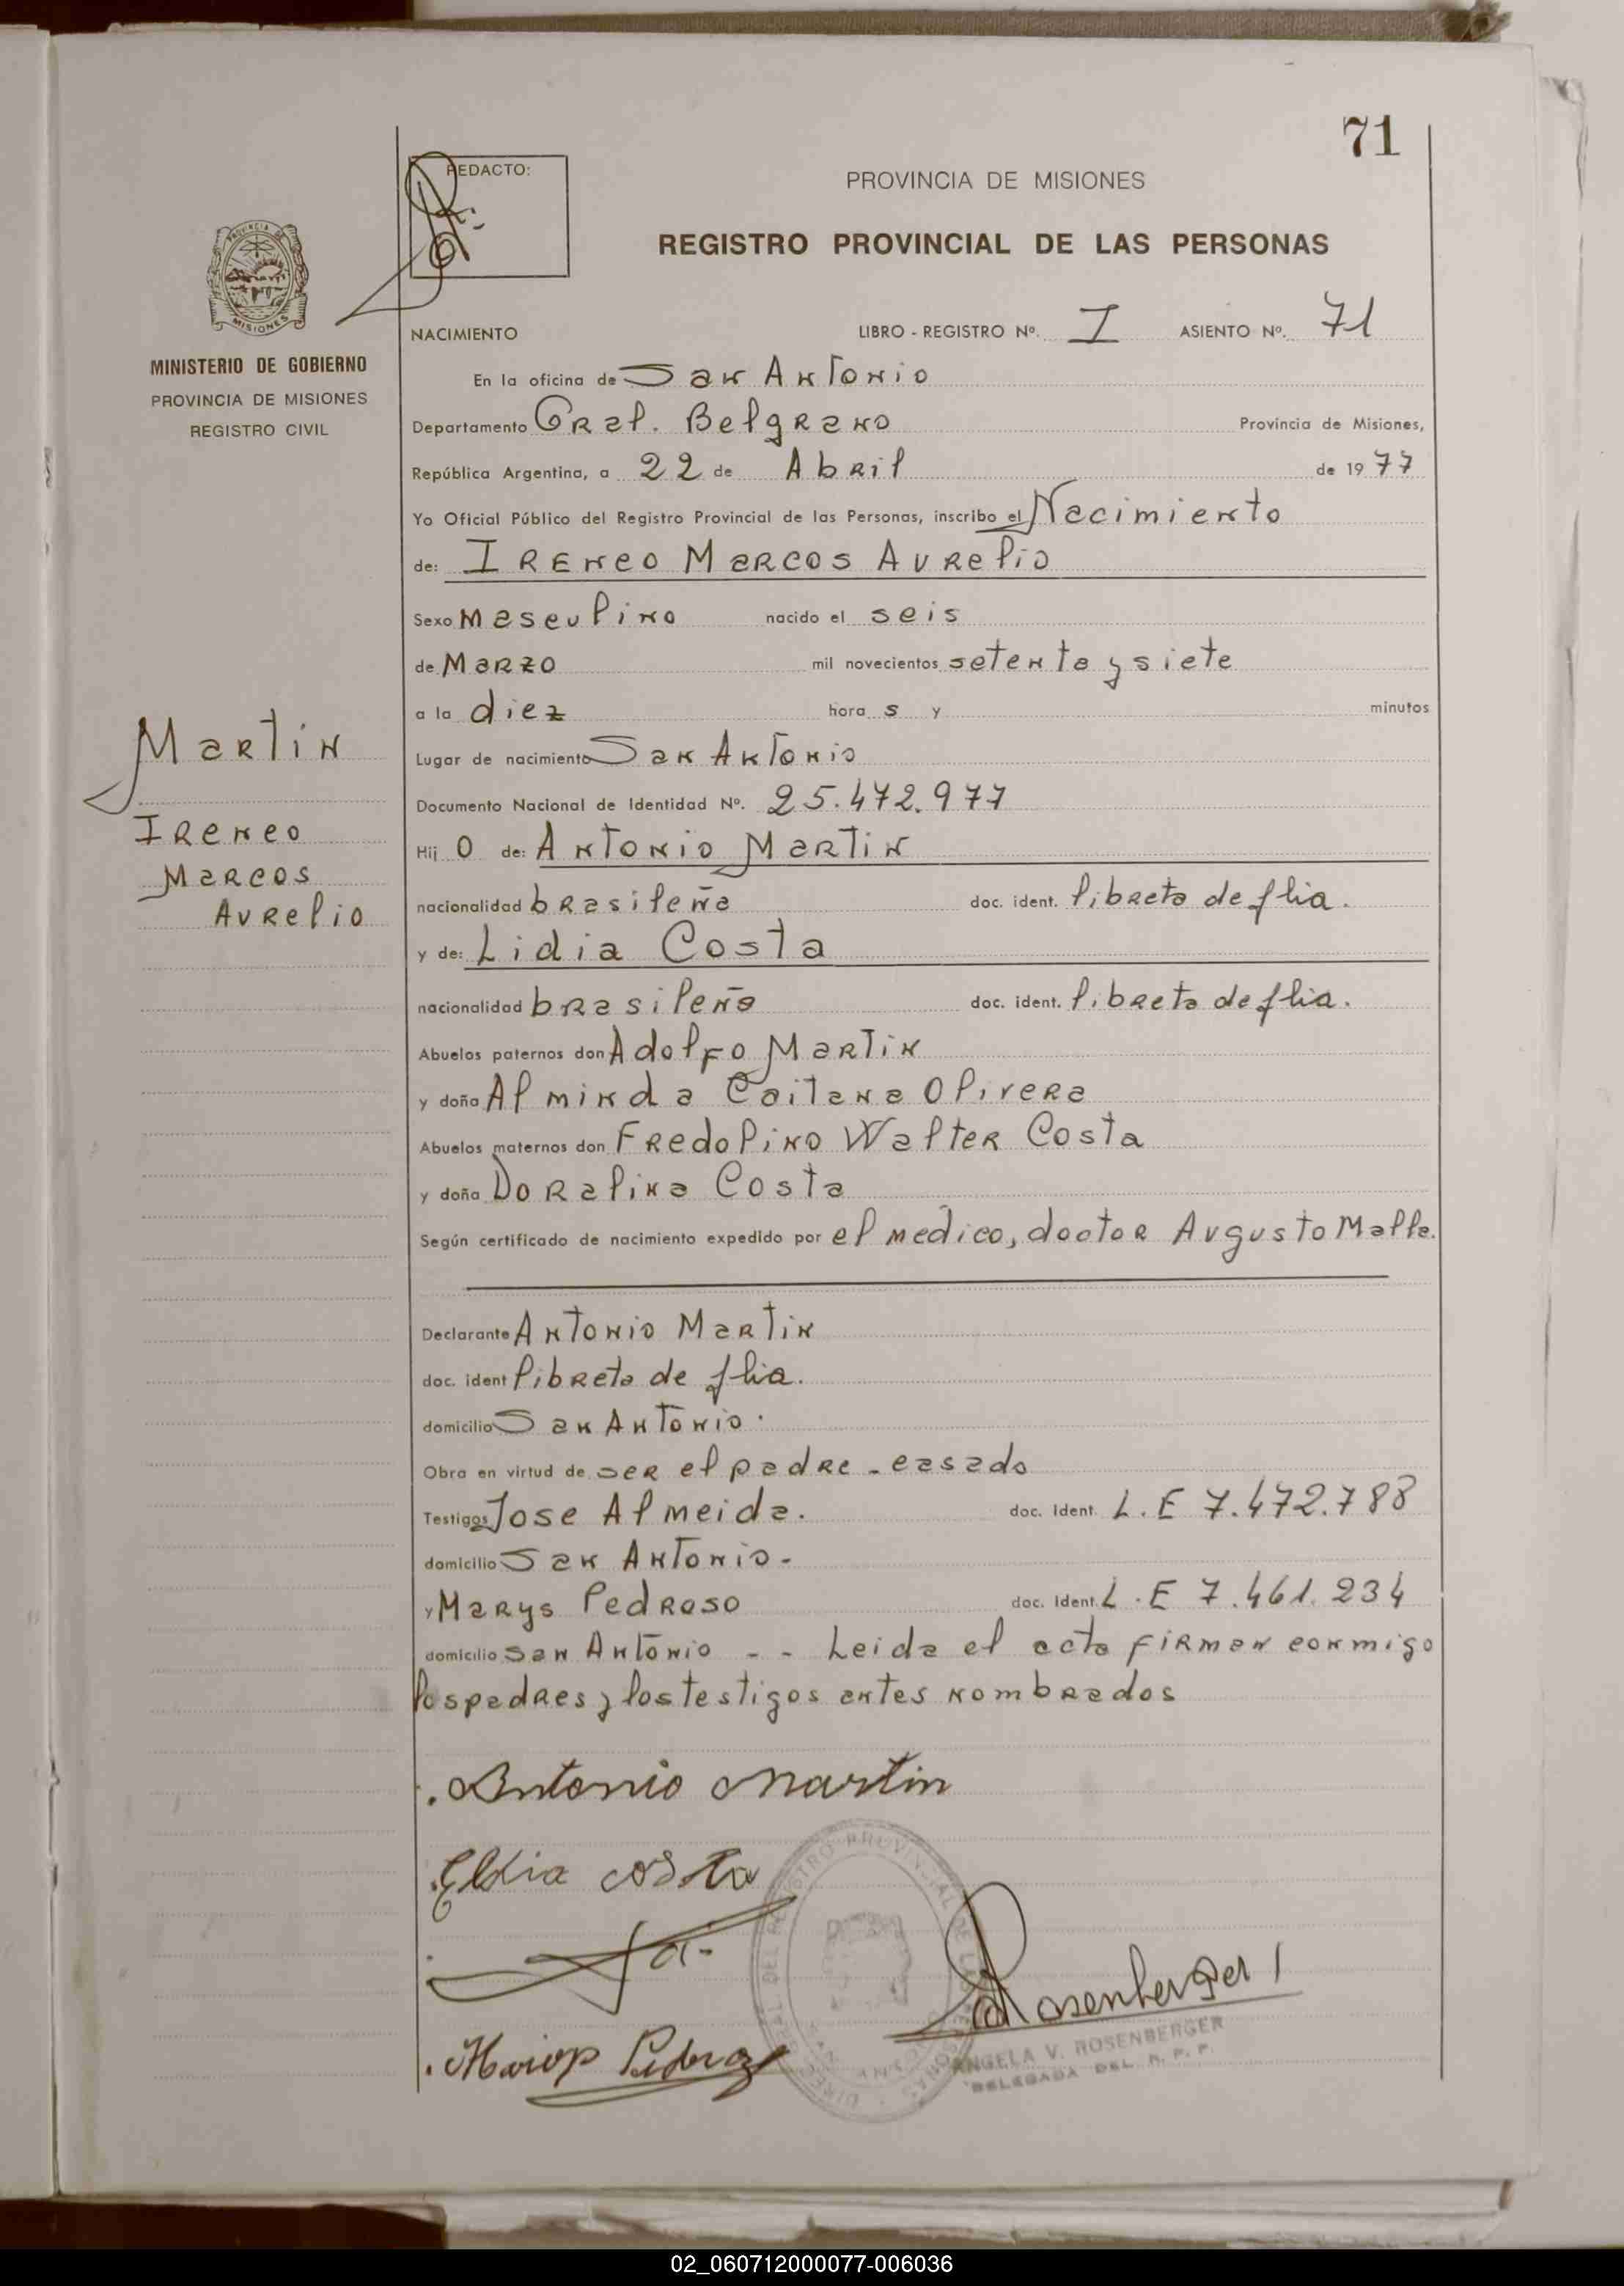 71
REDACTO:
PROVINCIA DE MISIONES
REGISTRO PROVINCIAL DE LAS PERSONAS
PROVINCIA DE
MISIONES
MINISTERIO DE GOBIERNO
PROVINCIA DE MISIONES
REGISTRO CIVIL
NACIMIENTO LIBRO - REGISTRO Nº. I ASIENTO Nº. 71
En la oficina de San Antonio
Departamento Gral. Belgrano Provincia de Misiones,
República Argentina, a 22 de Abril de 1977
Yo Oficial Público del Registro Provincial de las Personas, inscribo el Nacimiento
de: Ireneo Marcos Aurelio
Sexo masculino nacido el seis
de Marzo mil novecientos setenta y siete
a la diez hora s y minutos
Lugar de nacimiento San Antonio
Documento Nacional de Identidad Nº. 25.472.977
Hij o de: Antonio Martin
nacionalidad brasileña doc. ident. libreta de flia.
y de: Lidia Costa
nacionalidad brasileña doc. ident. libreta de flia.
Abuelos paternos don Adolfo Martin
y doña Alminda Caitana Olivera
Abuelos maternos don Fredolino Walter Costa
y doña Doralina Costa
Según certificado de nacimiento expedido por el medico, doctor Augusto Malle.
Declarante Antonio Martin
doc. ident libreta de flia.
domicilio San Antonio.
Obra en virtud de ser el padre - casado
Testigos Jose Almeida. doc. Ident. L.E 7.472.788
domicilio San Antonio -
y Marys Pedroso doc. Ident. L.E 7.461.234
domicilio San Antonio - - Leida el acta firman conmigo
los padres y los testigos antes nombrados
Martin
Ireneo
Marcos
Aurelio
Antonio Martin
Costa
Rosenberger
ANGELA V. ROSENBERGER
DELEGADA DEL R. P. P.
02_060712000077-006036